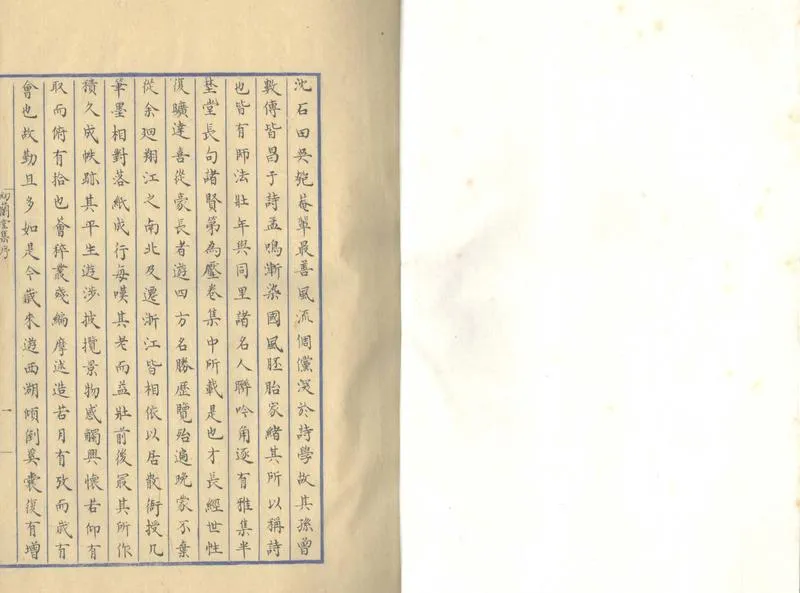 沈石田吳匏菴輩最善風流倜儻深於詩學故其孫曾
數傳皆昌于詩孟鳴漸染國風胚胎家緒其所以稱詩
也皆有師法壯年與同里諸名人聯吟角逐有雅集半
埜堂長句諸賢第為壓卷集中所載是也才長經世性
復曠達喜從豪長者遊四方名勝歷覽殆遍晚蒙不棄
從余迴翔江之南北及遷浙江皆相依以居散衙授几
筆墨相對落紙成行每嘆其老而益壯前後裒其所作
積久成帙跡其平生遊涉披攬景物感觸興懷若仰有
取而俯有拾也薈稡叢殘編摩述造若月有攷而歲有
會也故勤且多如是今歲來遊西湖傾倒奚囊復有增
蘭堂集序
一